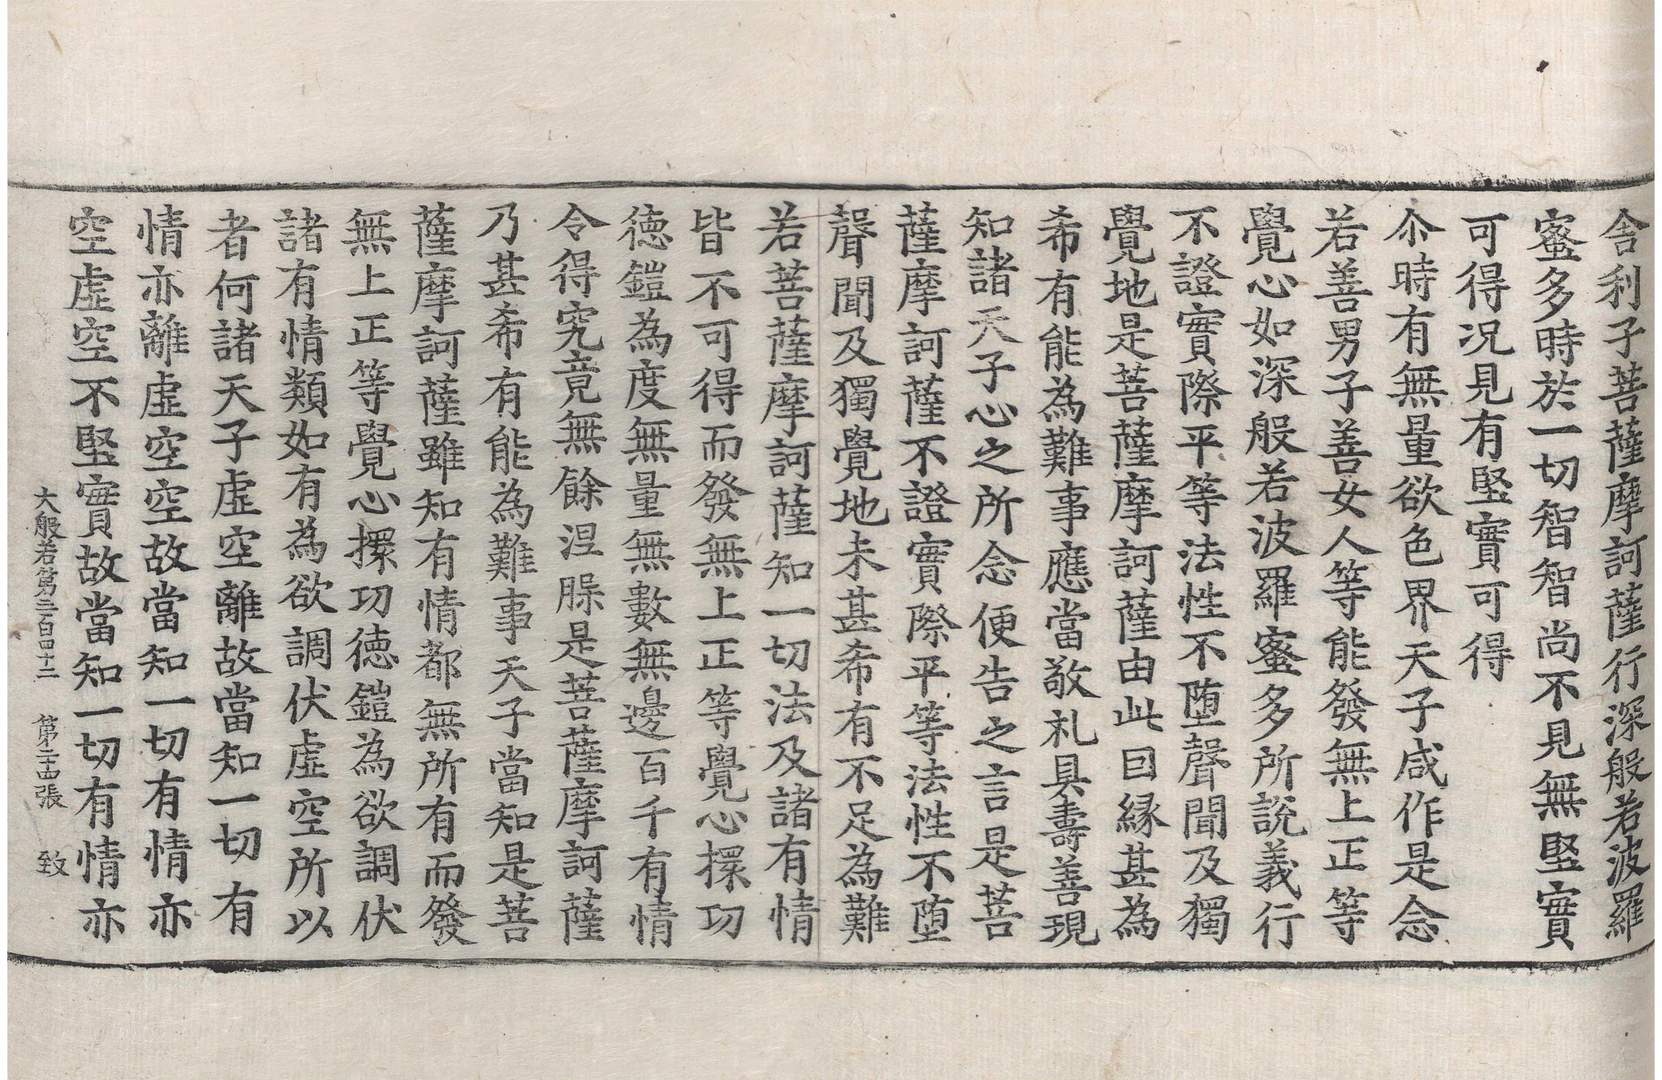 舍利子菩薩摩訶薩行深般若波羅
蜜多時於一切智智尚不見無堅實
可得況見有堅實可得
尒時有無量欲色界天子咸作是念
若善男子善女人等能發無上正等
覺心如深般若波羅蜜多所說義行
不證實際平等法性不墮聲聞及獨
覺地是菩薩摩訶薩由此因縁甚為
希有能為難事應當敬礼具壽善現
知諸天子心之所念便告之言是菩
薩摩訶薩不證實際平等法性不墮
聲聞及獨覺地未甚希有不足為難
若菩薩摩訶薩知一切法及諸有情
皆不可得而發無上正等覺心擐功
德鎧為度無量無數無邊百千有情
令得究竟無餘涅槃是菩薩摩訶薩
乃甚希有能為難事天子當知是菩
薩摩訶薩雖知有情都無所有而發
無上正等覺心擐功德鎧為欲調伏
諸有情類如有為欲調伏虛空所以
者何諸天子虛空離故當知一切有
情亦離虛空空故當知一切有情亦
空虛空不堅實故當知一切有情亦
大般若第三百四十二　第二十四張　致